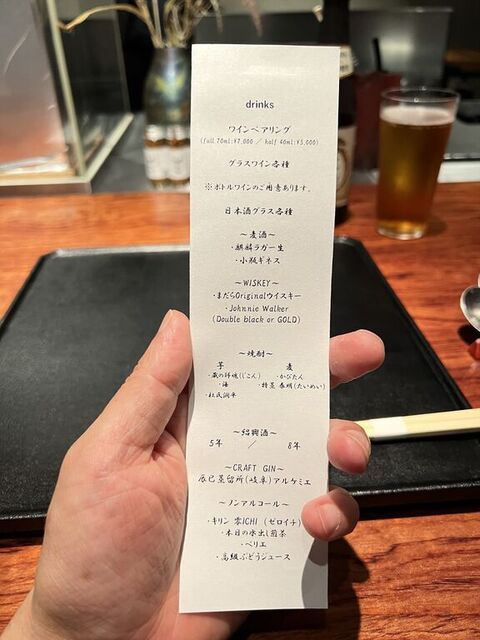 drinks
ワインペアリング
(full 70ml:¥7,000 / half 40ml:¥5,000)
グラスワイン各種
※ボトルワインのご用意あります。
日本酒グラス各種
～麦酒～
・麒麟ラガー生
・小瓶ギネス
～WISKEY～
・まだらOriginalウイスキー
・Johnnie Walker
(Double black or GOLD)
～焼酎～
芋 麦
・蔵の師魂(しこん) ・かぴたん
・海 ・特蒸 泰明(たいめい)
・杜氏潤平
～紹興酒～
5年 / 8年
～CRAFT GIN～
辰巳蒸留所(岐阜)アルケミエ
～ノンアルコール～
・キリン 零ICHI (ゼロイチ)
・本日の水出し煎茶
・ペリエ
・高級ぶどうジュース